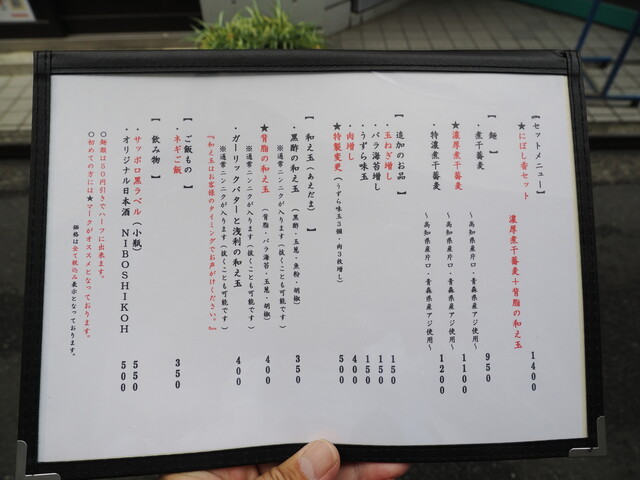 【セットメニュー】
★にぼし香セット 濃厚煮干蕎麦＋背脂の和え玉 1400
【 麺 】
・煮干蕎麦 950
～高知県産片口・青森県産アジ使用～
★濃厚煮干蕎麦 1100
～高知県産片口・青森県産アジ使用～
・特濃煮干蕎麦 1200
～高知県産片口・青森県産アジ使用～
【 追加のお品 】
・玉ねぎ増し 150
・バラ海苔増し 150
・うずら味玉 150
・肉増し 400
★特製変更（うずら味玉3個・肉3枚増し） 500
【 和え玉（あえだま） 】
・黒酢の和え玉 （黒酢・玉葱・魚粉・胡椒） 350
※通常ニンニクが入ります（抜くことも可能です）
★背脂の和え玉 （背脂・バラ海苔・玉葱・胡椒） 400
※通常ニンニクが入ります（抜くことも可能です）
・ガーリックバターと浅利の和え玉 400
※通常ニンニクが入ります（抜くことも可能です）
『和え玉はお客様のタイミングでお声がけください。』
【 ご飯もの 】
・ネギご飯 350
【 飲み物 】
・サッポロ黒ラベル（小瓶） 550
・オリジナル日本酒 NIBOSHIKOH 500
○麺類は50円引きでハーフに出来ます。
○初めての方には★マークがオススメとなっております。
価格は全て税込み表示となっております。